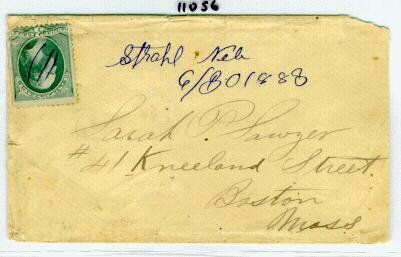 11056
Strahl Neb
6/30 1888
Sarah P. Sawyer
#41 Kneeland Street
Boston
Mass